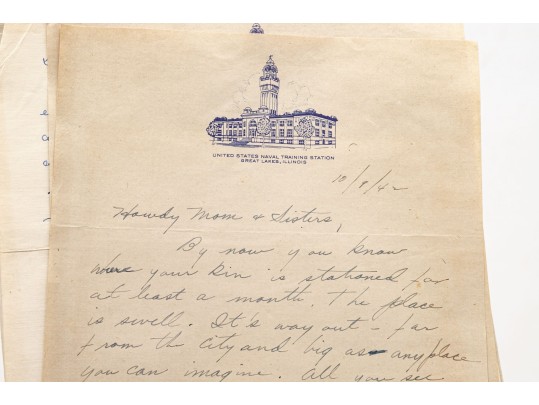 UNITED STATES NAVAL TRAINING STATION
GREAT LAKES, ILLINOIS
10/8/42
Howdy Mom & Sisters,
By now you know
where your kin is stationed for
at least a month. The place
is swell. It's way out - far
from the city and big as any place
you can imagine. All you see